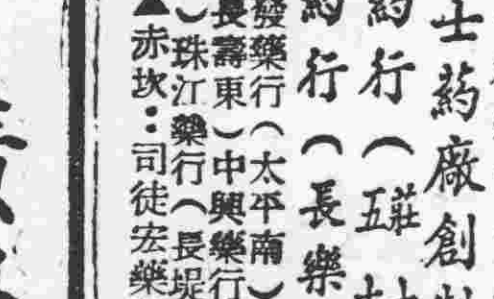 士药廠創
药行（五莊
药行（長樂
發藥行（太平南）
長壽東）中興樂行
）珠江藥行（長堤
▲赤坎：司徒宏藥